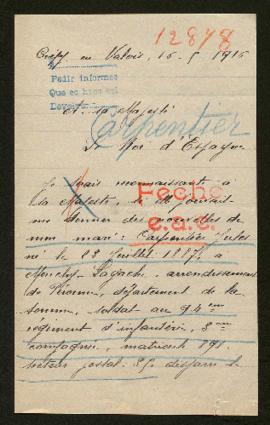 12878
Crépy en Valois, 16-5 1915
Pedir informes
A sa Majesté
Carpentier
Le Roi d'Espagne
Je serais reconnaissant à
sa Majesté, si Il pouvait
me donner des nouvelles de
mon mari: Carpentier Jules
né le 23 Juillet 1887, à
Monchy Lagache, arrondissement
de Péronne, département de la
Somme, soldat au 94eme
régiment d'infanterie, 8eme
compagnie, matricule 891
secteur postal disparu le
Fecho
e.a.c.